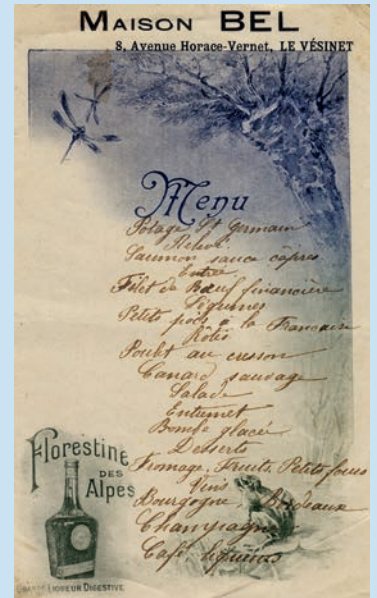 MAISON BEL
8, Avenue Horace-Vernet, LE VÉSINET
Menu
Potage St Germain
Relevé
Saumon sauce câpres
Entrée
Filet de Bœuf financière
Légumes
Petits pois à la Française
Rôtis
Poulet au cresson
Canard sauvage
Salade
Entremet
Bombe glacée
Desserts
Fromage, Fruits, Petits fours
Vins
Bourgogne, Bordeaux
Champagne
Café, liqueurs
Florestine
DES
Alpes
GRANDE LIQUEUR DIGESTIVE